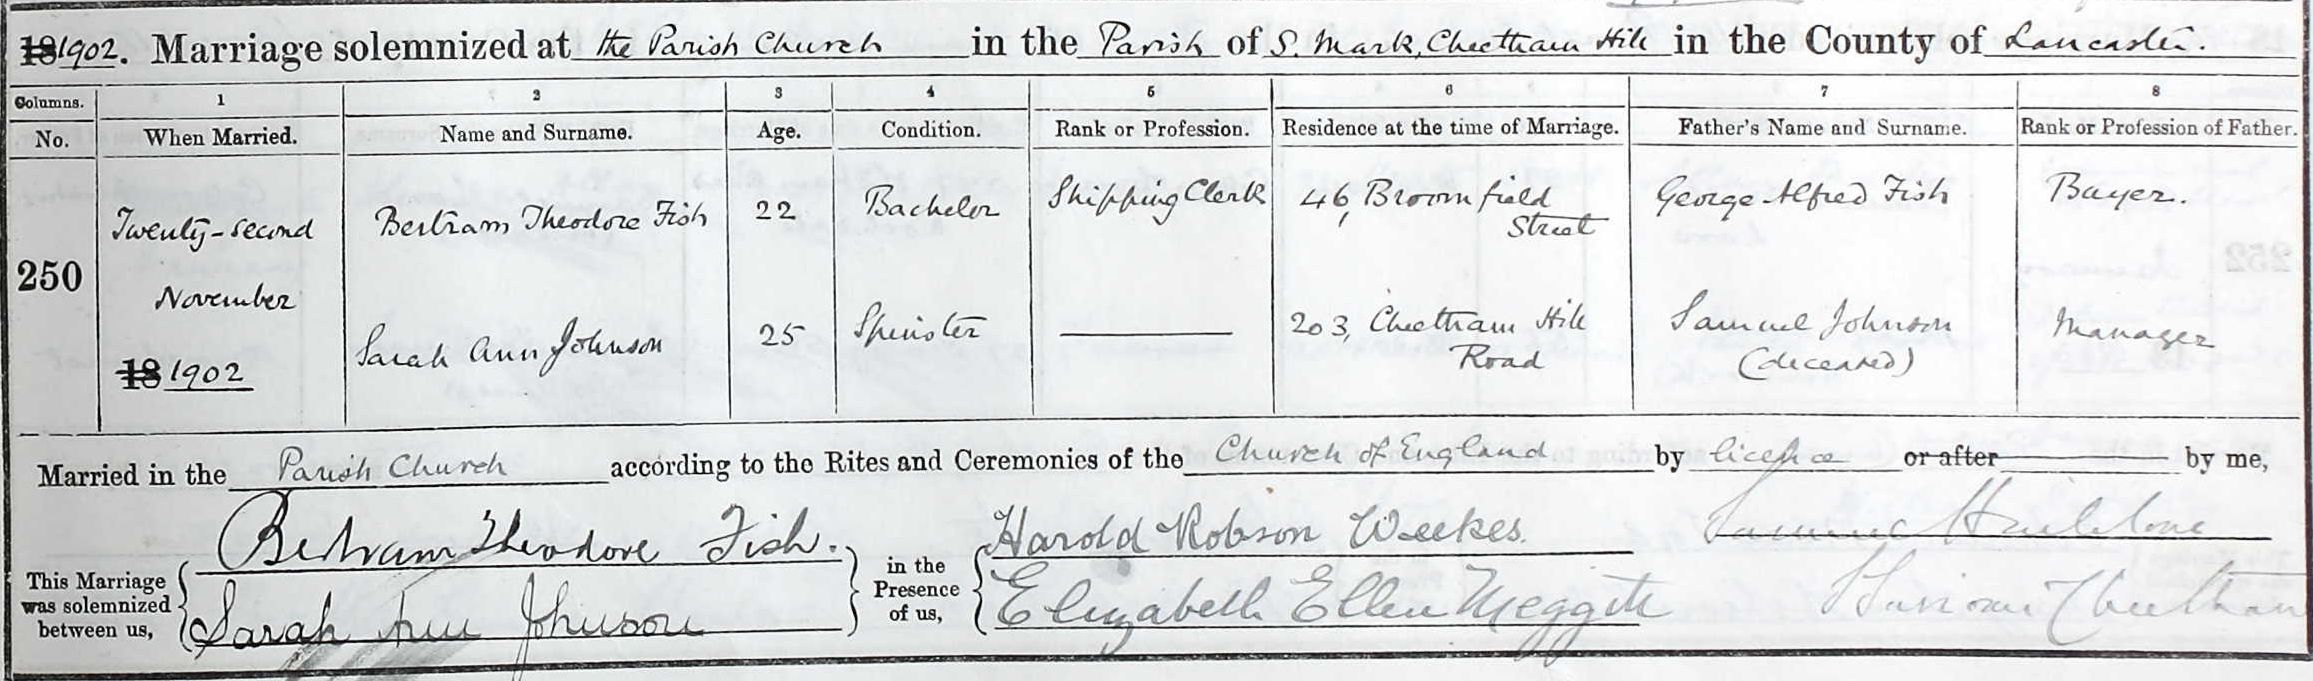 18 1902. Marriage solemnized at the Parish Church in the Parish of S. Mark, Cheetham Hill in the County of Lancaster.
Columns. 1 2 3 4 5 6 7 8
No. When Married. Name and Surname. Age. Condition. Rank or Profession. Residence at the time of Marriage. Father's Name and Surname. Rank or Profession of Father.
250
Twenty-second
November
18 1902
Bertram Theodore Fish 22 Bachelor Shipping Clerk 46, Broomfield
Street
George Alfred Fish Buyer.
Sarah Ann Johnson 25 Spinster 203, Cheetham Hill
Road
Samuel Johnson
(deceased)
Manager
Married in the Parish Church according to the Rites and Ceremonies of the Church of England by licence or after by me,
This Marriage
was solemnized
between us,
Bertram Theodore Fish.
Sarah Ann Johnson
in the
Presence
of us,
Harold Robson Weekes.
Elizabeth Ellen Meggitt